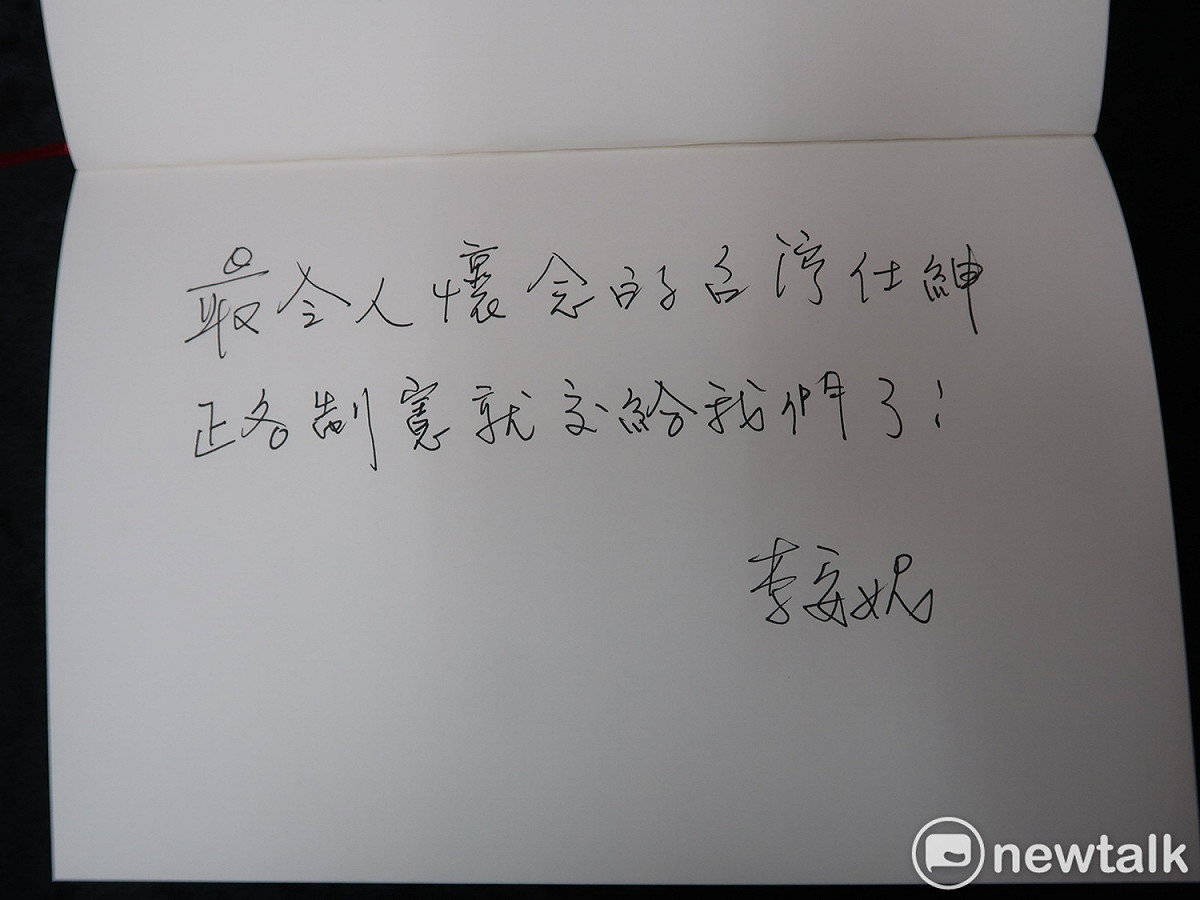 最令人懷念的台灣仕紳
正名制憲就交給我們了!
李安妮
newtalk